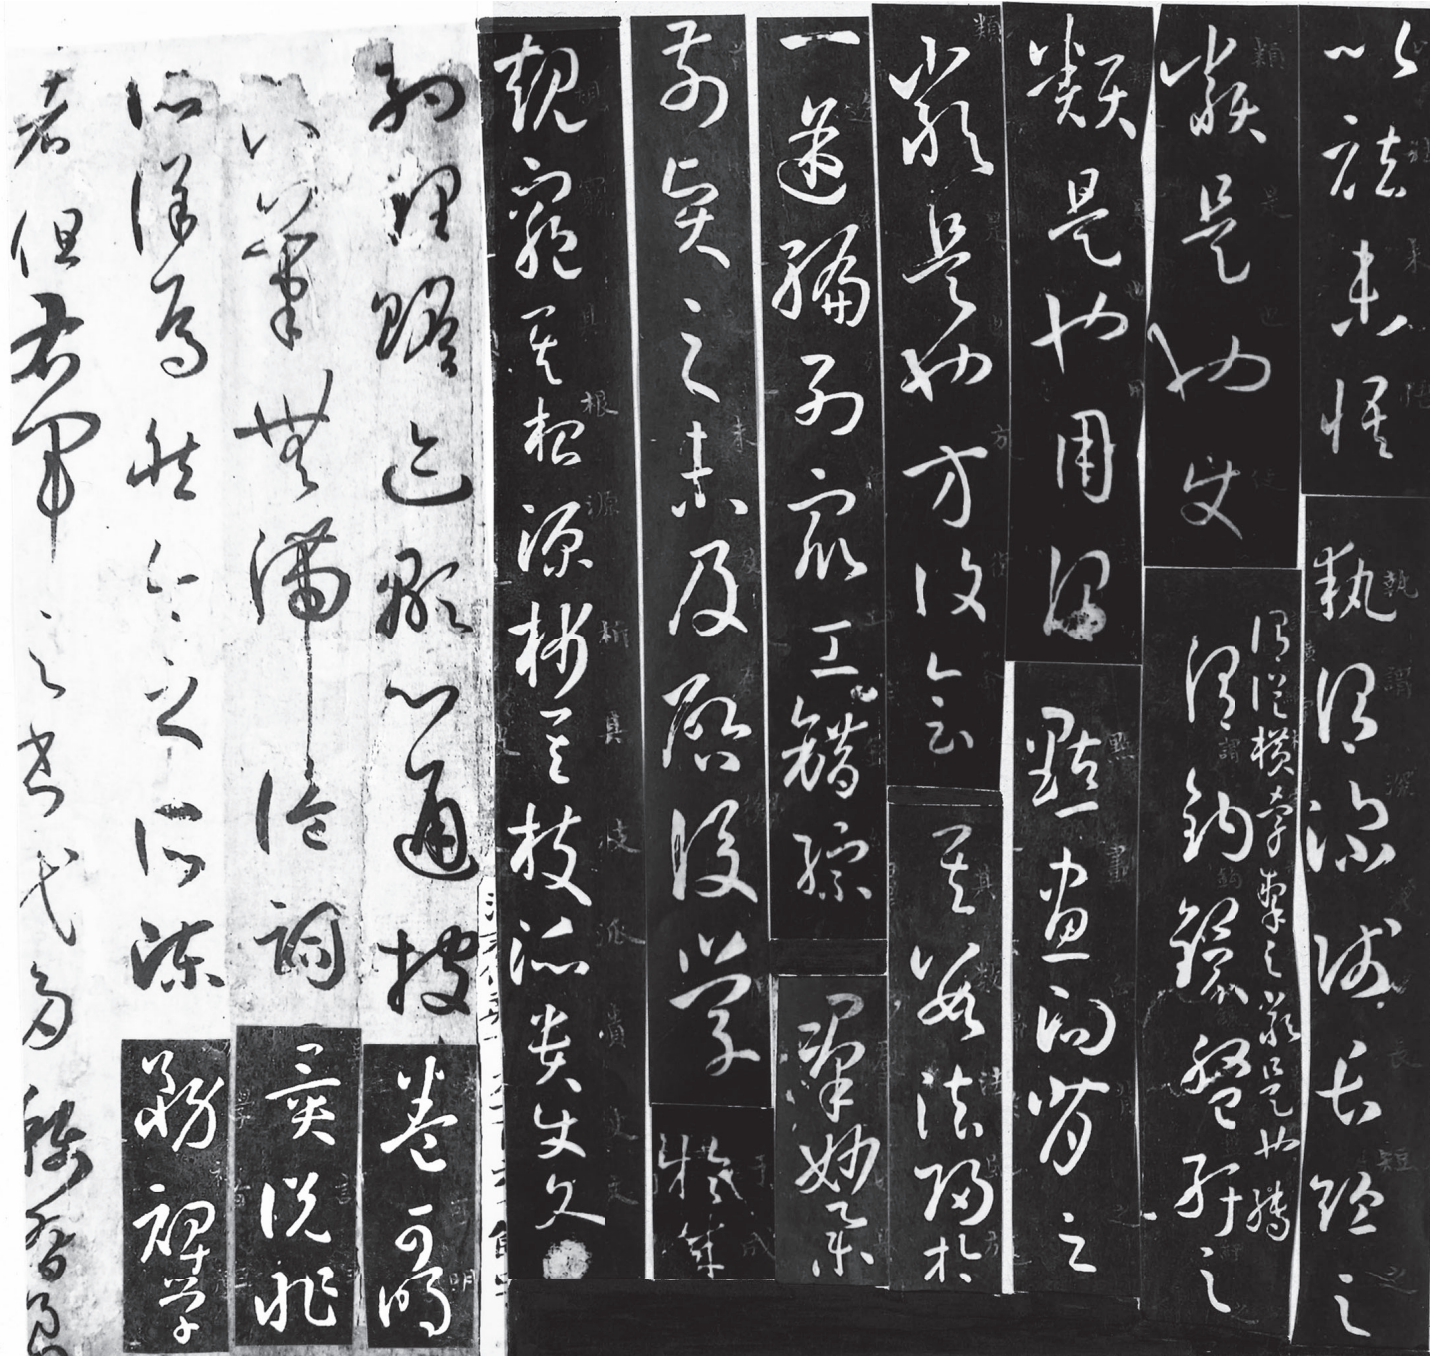 以祛未悟執謂深淺長短之
類是也使謂縱橫牽掣之類是也轉
謂鉤鐶盤紆之
類是也用謂點畫向背之
類是也方復會其數法歸於
一途編列眾工錯綜群妙舉
前賢之未及啓後學於成
規窺其根源析其枝派貴使文
約理贍迹顯心通披卷可明
下筆無滯詭詞異說非
所詳焉然今之所陳務裨學
者但右軍之書代多稱習良